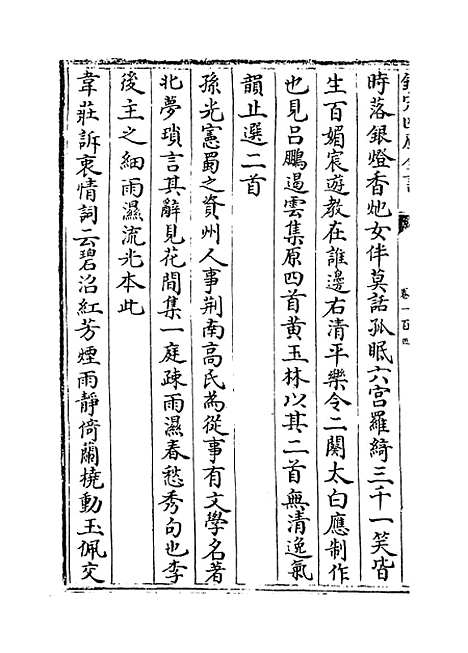 欽定四庫全書
卷一百四
時落銀燈香灺女伴莫話孤眠六宮羅綺三千一笑皆
生百媚宸遊教在誰邊右清平樂令二闋太白應制作
也見吕鵬遏雲集原四首黄玉林以其二首無清逸氣
韻止選二首
孫光憲蜀之資州人事荆南髙氏為從事有文學名著
北夢瑣言其辭見花間集一庭疎雨濕春愁秀句也李
後主之細雨濕流光本此
韋莊訴衷情詞云碧沼紅芳煙雨靜倚蘭橈動玉佩交